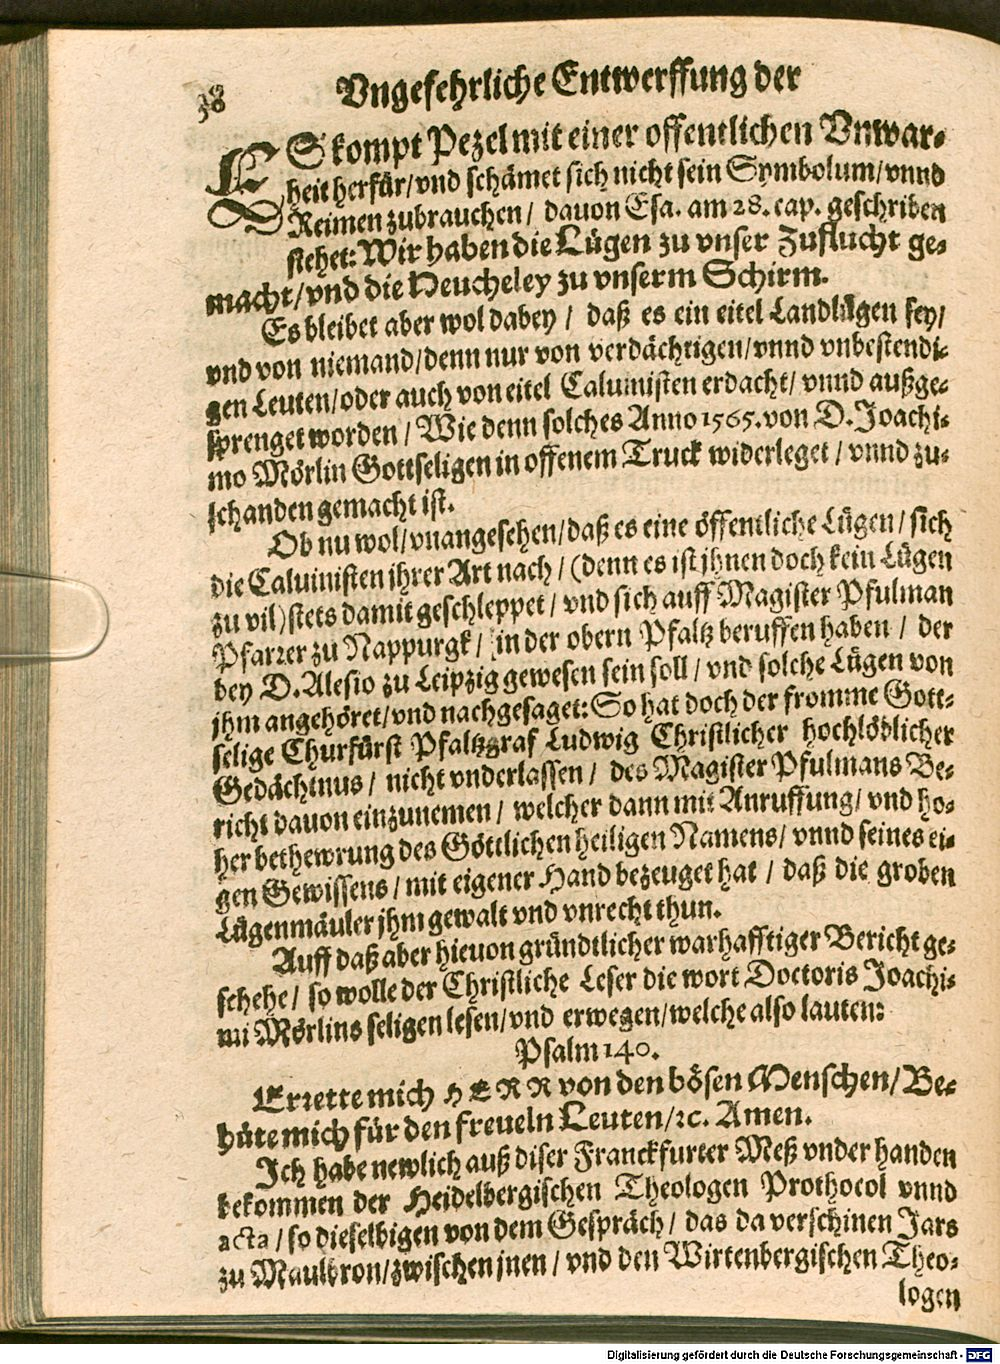 38
Vngefehrliche Entwerffung der
ES kompt Pezel mit einer offentlichen Vnwar-
heit herfür/vnd schämet sich nicht sein Symbolum/vnnd
Reimen zubrauchen/ dauon Esa. am 28. cap. geschriben
stehet: Wir haben die Lügen zu vnser Zuflucht ge-
macht/vnd die Heucheley zu vnserm Schirm.
Es bleibet aber wol dabey / daß es ein eitel Landlügen sey/
vnd von niemand/denn nur von verdächtigen/vnnd vnbestendi-
gen Leuten/oder auch von eitel Caluinisten erdacht/ vnnd außge-
sprenget worden / Wie denn solches Anno 1565. von D. Joachi-
mo Mörlin Gottseligen in offenem Truck widerleget / vnnd zu-
schanden gemacht ist.
Ob nu wol/vnangesehen/daß es eine öffentliche Lügen/ sich
die Caluinisten ihrer Art nach / (denn es ist jhnen doch kein Lügen
zu vil) stets damit geschleppet / vnd sich auff Magister Pfulman
Pfarrer zu Nappurgk/ in der obern Pfaltz beruffen haben / der
bey D. Alesio zu Leipzig gewesen sein soll / vnd solche Lügen von
jhm angehöret/vnd nachgesaget: So hat doch der fromme Gott-
selige Churfürst Pfaltzgraf Ludwig Christlicher hochlöblicher
Gedächtnus / nicht vnderlassen / des Magister Pfulmans Be-
richt dauon einzunemen / welcher dann mit Anruffung/ vnd ho-
her bethewrung des Göttlichen heiligen Namens/ vnnd seines ei-
gen Gewissens / mit eigener Hand bezeuget hat / daß die groben
Lügenmäuler jhm gewalt vnd vnrecht thun.
Auff daß aber hieuon gründtlicher warhafftiger Bericht ge-
schehe / so wolle der Christliche Leser die wort Doctoris Joachi-
mi Mörlins seligen lesen/vnd erwegen/welche also lauten:
Psalm 140.
Errette mich HERR von den bösen Menschen/ Be-
hüte mich für den freueln Leuten/ꝛc. Amen.
Ich habe newlich auß diser Franckfurter Meß vnder handen
bekommen der Heidelbergischen Theologen Prothocol vnnd
acta / so dieselbigen von dem Gespräch / das da verschinen Jars
zu Maulbron/zwischen jnen / vnd den Wirtenbergischen Theo-
logen
Digitalisierung gefördert durch die Deutsche Forschungsgemeinschaft - DFG